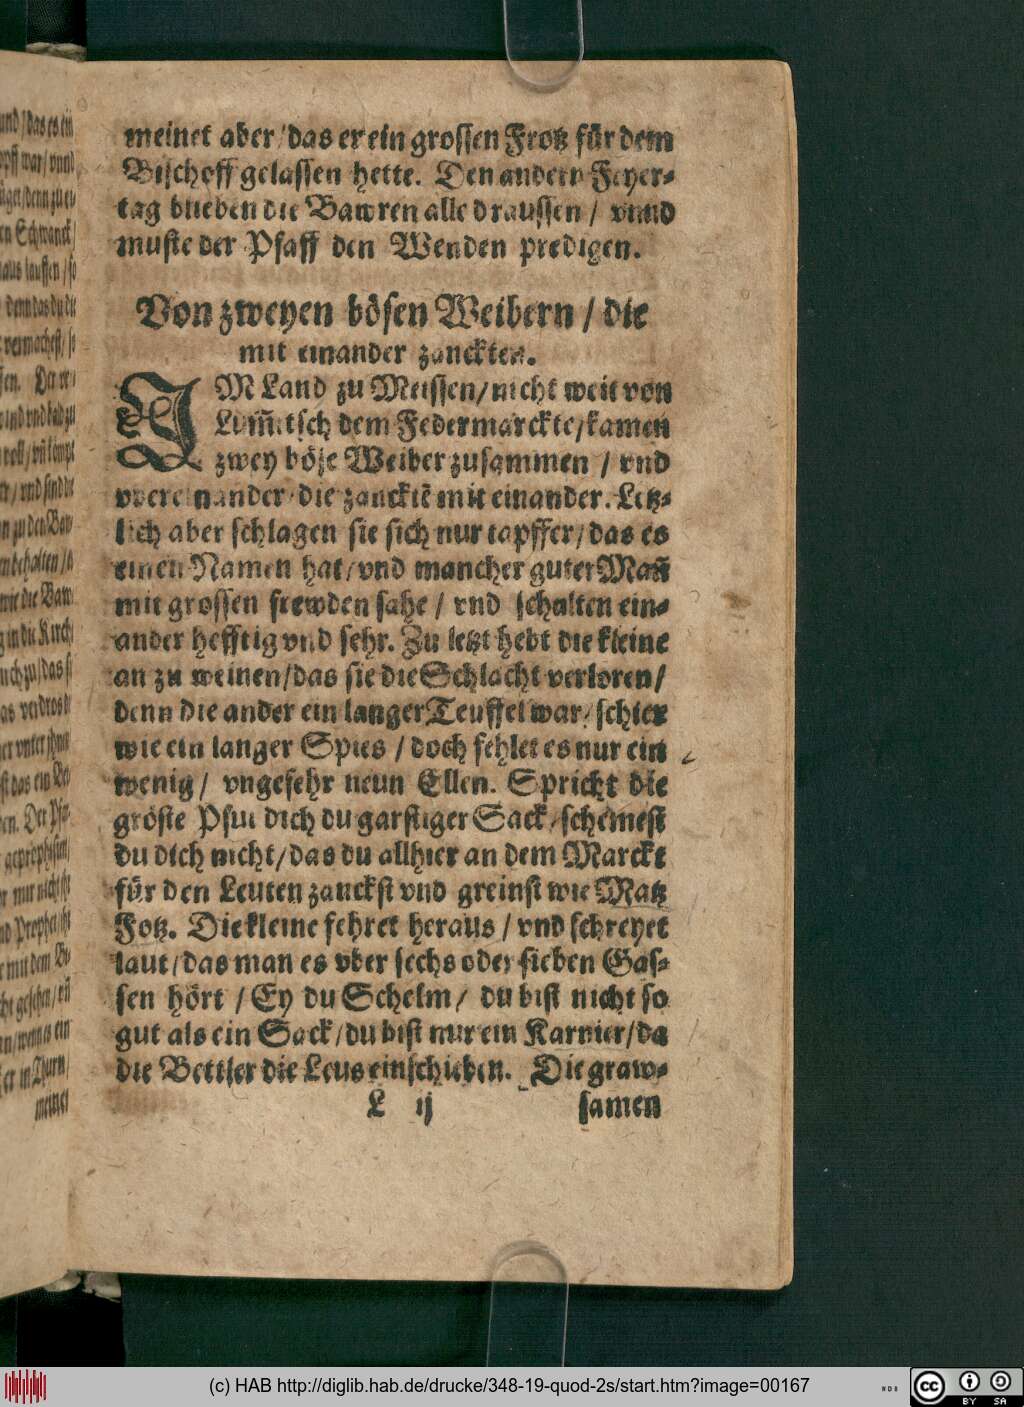 meinet aber / das er ein grossen Frotz für dem
Bischoff gelassen hette. Den andern Feyer-
tag blieben die Bawren alle draussen / vnnd
muste der Pfaff den Wenden predigen.
Von zweyen bösen Weibern / die
mit einander zanckten.
IM Land zu Meissen / nicht weit von
Lum̃etsch dem Federmarckte / kamen
zwey böse Weiber zusammen / vnd
vbereinander die zancktẽ mit einander. Letz-
lich aber schlagen sie sich nur tapffer / das es
einen Namen hat / vnd mancher guter Mañ
mit grossen frewden sahe / vnd schalten ein-
ander hefftig vnd sehr. Zu letzt hebt die kleine
an zu weinen / das sie die Schlacht verloren /
denn die ander ein langer Teuffel war / schier
wie ein langer Spies / doch fehlet es nur ein
wenig / vngefehr neun Ellen. Spricht die
gröste Pfui dich du garstiger Sack / schemest
du dich nicht / das du allhier an dem Marckt
für den Leuten zanckst vnd greinst wie Matz
Fotz. Die kleine fehret heraus / vnd schreyet
laut / das man es vber sechs oder sieben Gas-
sen hört / Ey du Schelm / du bist nicht so
gut als ein Sack / du bist nur ein Karnier / da
die Bettler die Leus einschieben. Die graw-
L ij samen
(c) HAB http://diglib.hab.de/drucke/348-19-quod-2s/start.htm?image=00167